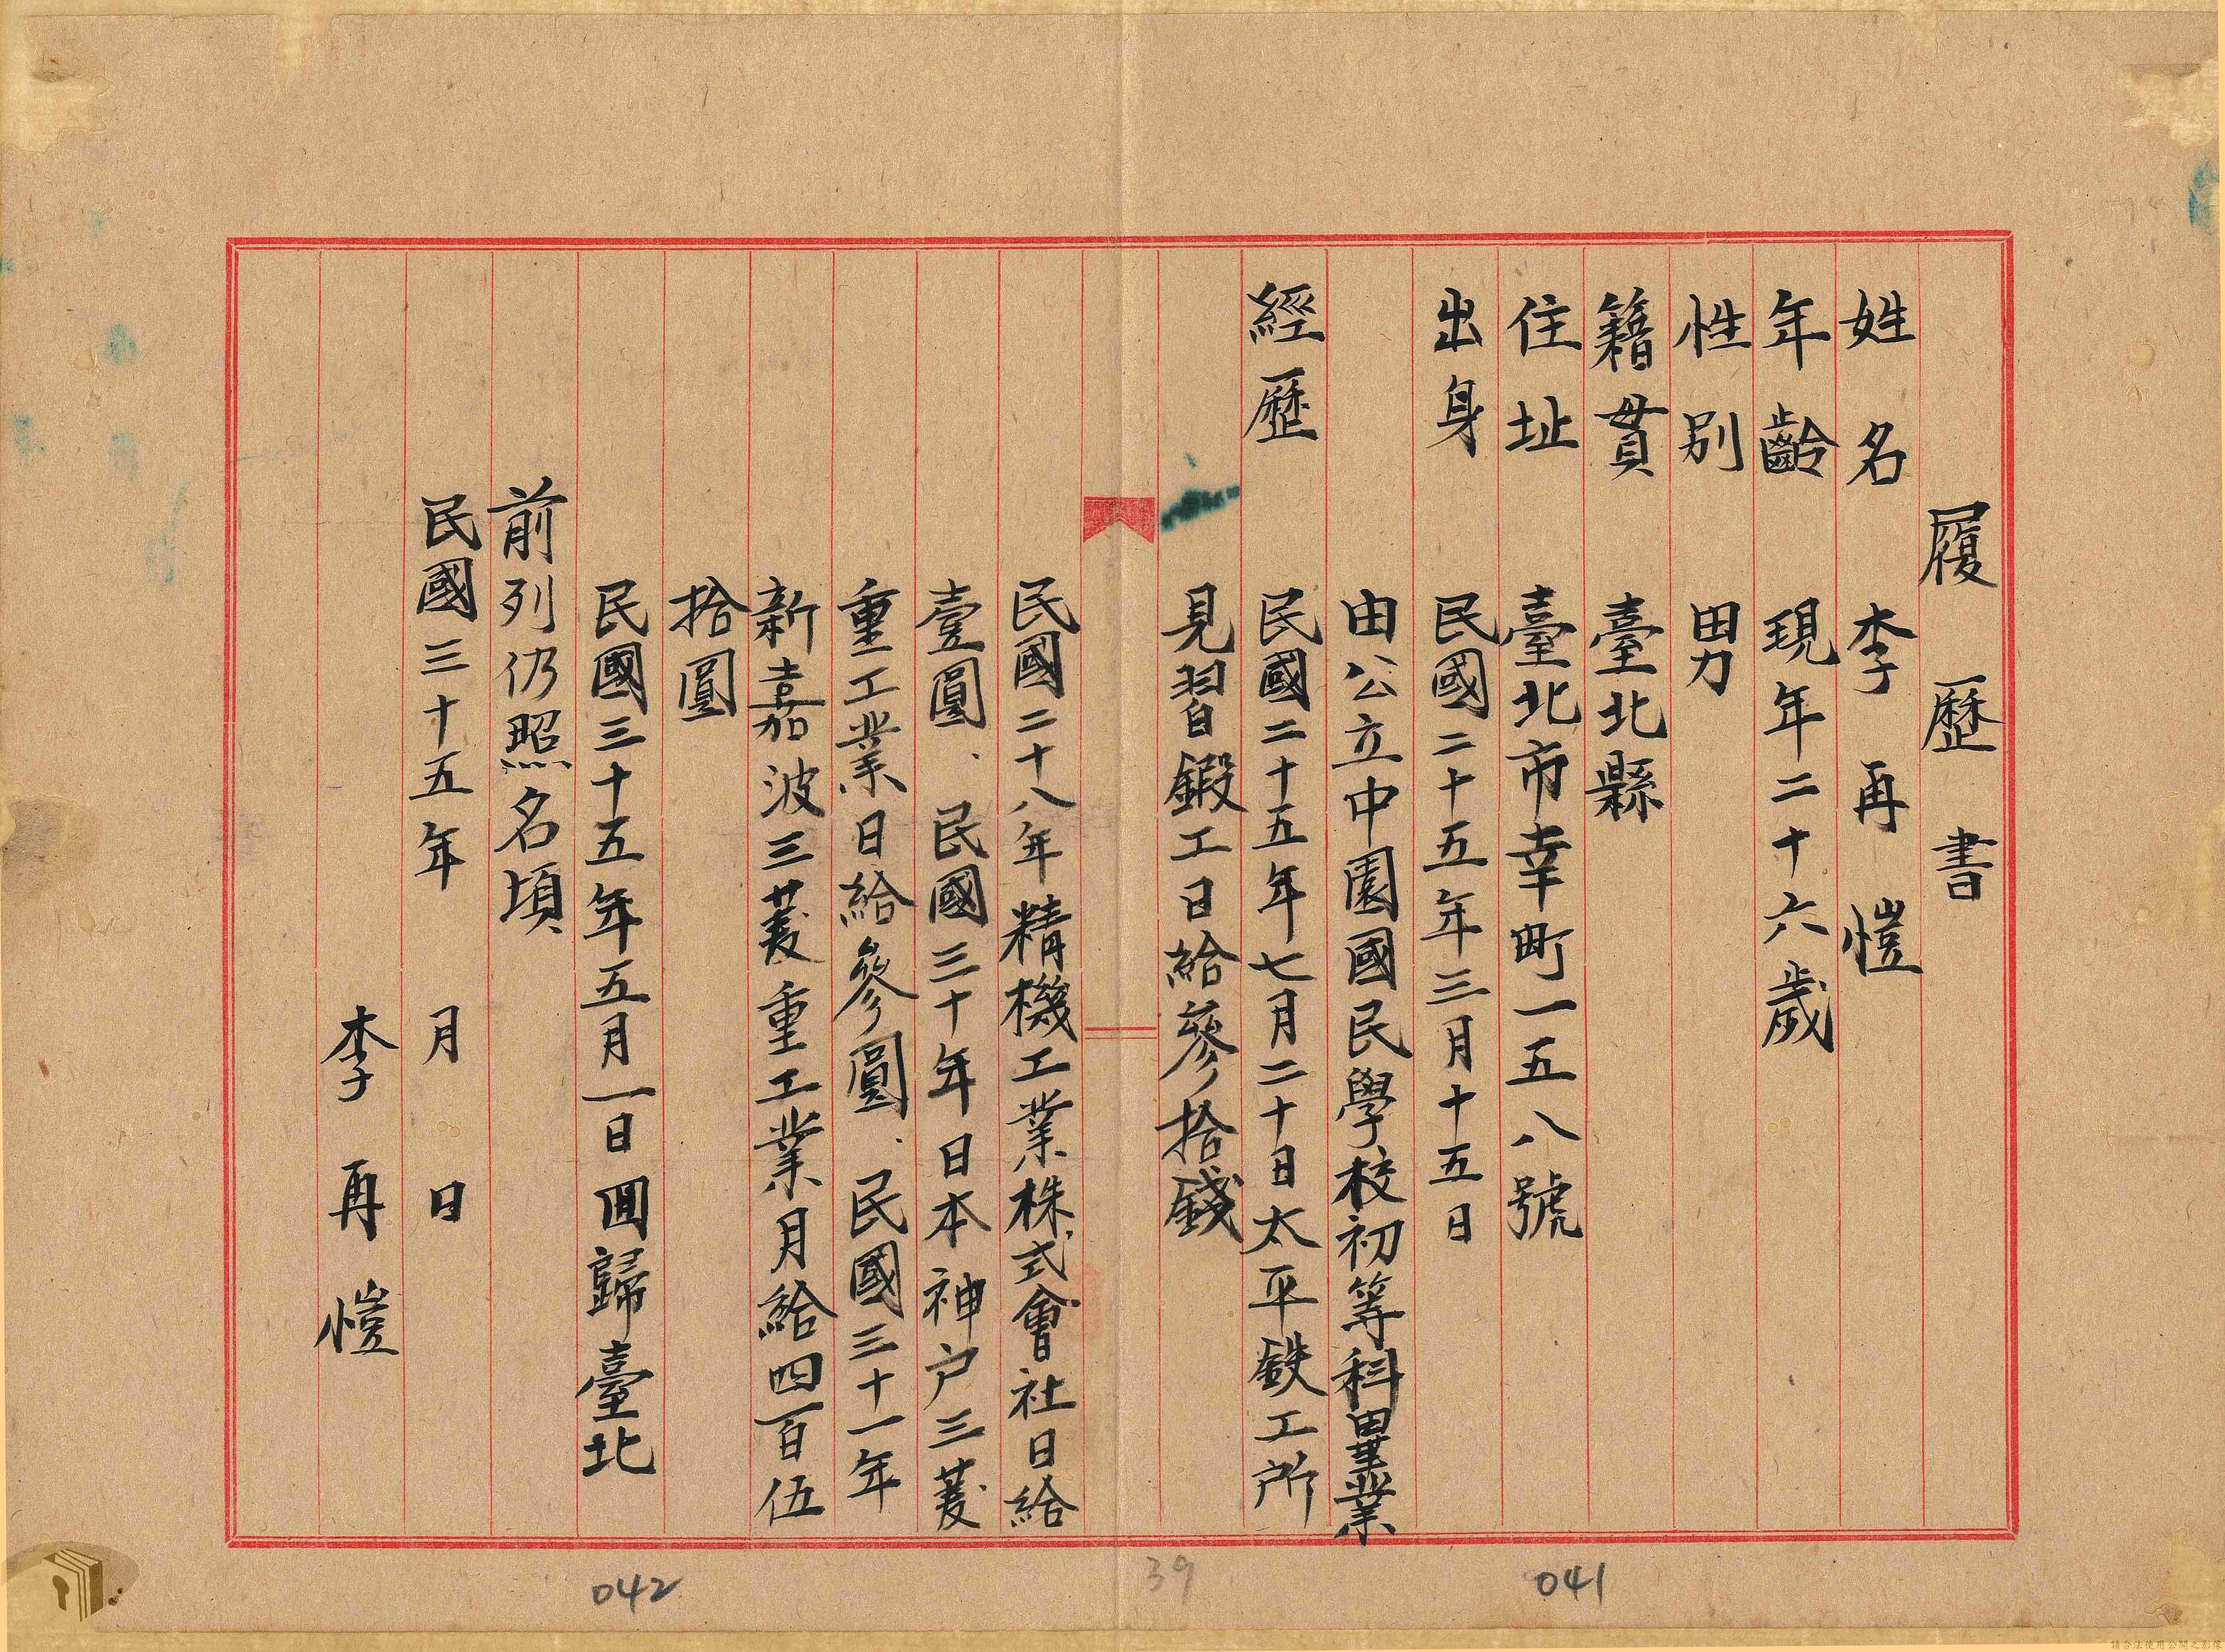 履歷書
姓名 李再愷
年齡 現年二十六歲
性別 男
籍貫 臺北縣
住址 臺北市幸町一五八號
出身 民國二十五年三月十五日
由公立中園國民學校初等科畢業
經歷 民國二十五年七月二十日太平鉄工所
見習鍛工日給參拾錢
民國二十八年精機工業株式會社日給
壹圓、民國三十年日本神戶三菱
重工業日給參圓、民國三十一年
新嘉波三菱重工業月給四百伍
拾圓
民國三十五年五月一日囬歸臺北
前列仍照名項
民國三十五年 月 日
李再愷
041
39
042
請合法使用公開之影像